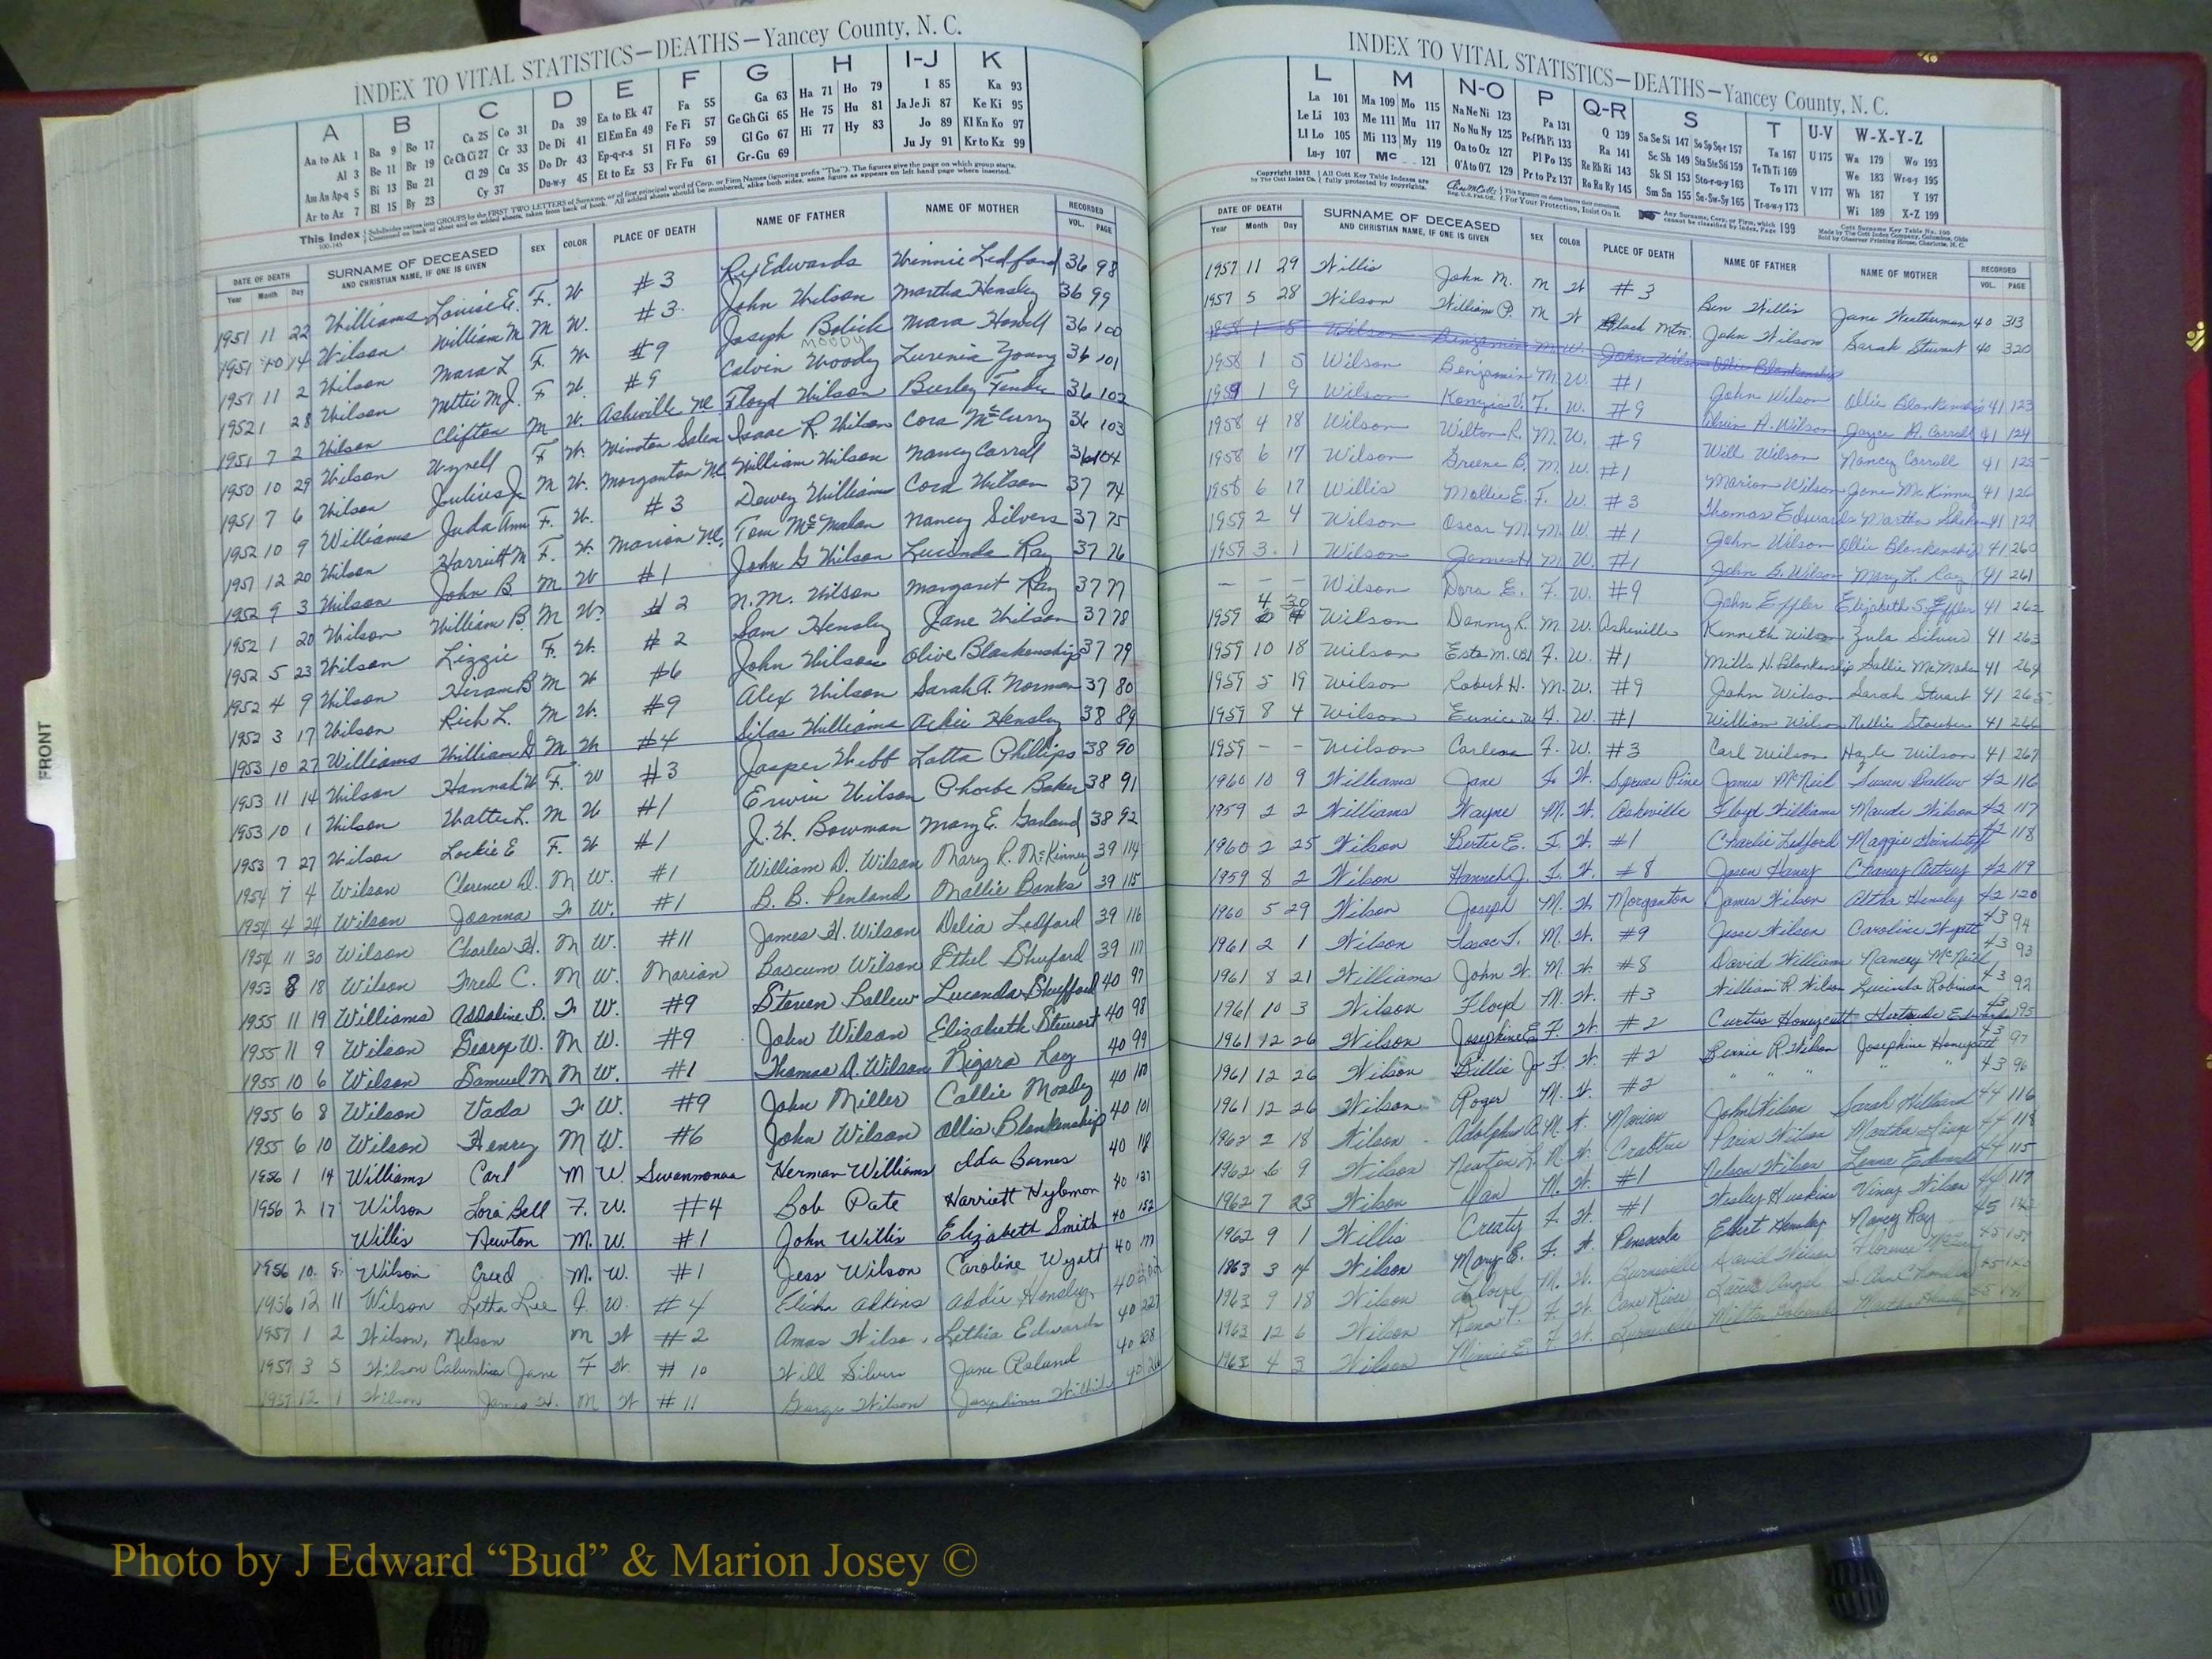 INDEX TO VITAL STATISTICS—DEATHS—Yancey County, N. C.
A B C D E F G H I-J K
Aa to Ak 1 Ba 9 Bo 17 Ca 25 Co 31 Da 39 Ea to Ek 47 Fa 55 Ga 63 Ha 71 Ho 79 I 85 Ka 93
Al 3 Be 11 Br 19 Ce Ch Ci 27 Cr 33 De Di 41 El Em En 49 Fe Fi 57 Ge Gh Gi 65 He 75 Hu 81 Ja Je Ji 87 Ke Ki 95
Am An Ap-q 5 Bi 13 Bu 21 Cl 29 Cu 35 Do Dr 43 Ep-q-r-s 51 Fl Fo 59 Gl Go 67 Hi 77 Hy 83 Jo 89 Kl Kn Ko 97
Ar to Az 7 Bl 15 By 23 Cy 37 Du-w-y 45 Et to Ez 53 Fr Fu 61 Gr-Gu 69 Ju Jy 91 Kr to Kz 99
This Index
DATE OF DEATH SURNAME OF DECEASED SEX COLOR PLACE OF DEATH NAME OF FATHER NAME OF MOTHER RECORDED
Year Month Day AND CHRISTIAN NAME, IF ONE IS GIVEN VOL. PAGE
1951 11 22 Williams Louise E. F. W #3 Edwards Winnie Ledford 36 98
1951 10 14 Wilson William M M W. #3 John Wilson Martha Hensley 36 99
1951 11 2 Wilson Mara L F. W #9 Joseph Bolick Mara Howell 36 100
MOODY
1952 1 28 Wilson Mettie M.J. F W. #9 Calvin Woody Lurinia Young 36 101
1951 7 2 Wilson Clifton M W. Asheville NC Floyd Wilson Beesley 36 102
1950 10 29 Wilson F W. Winston Salem Isaac R. Wilson Cora McCurry 36 103
1951 7 6 Wilson Julius J. M W. Morganton NC William Wilson Nancy Carroll 36 104
1952 10 9 Williams Juda Ann F. W. #3 Dewey Williams Cora Wilson 37 74
1951 12 20 Wilson Harriett M F. W. Marion NC. Tom McMahan Nancy Silvers 37 75
1952 9 3 Wilson John B M. W #1 John G Wilson Lucinda Ray 37 76
1952 1 20 Wilson William B. M W. #2 N.M. Wilson Margaret Ray 37 77
1952 5 23 Wilson Lizzie F. W. #2 Sam Hensley Jane Wilson 37 78
1952 4 9 Wilson Hiram B M W #6 John Wilson Olive Blankenship 37 79
1952 3 17 Wilson Rich L. M W. #9 Alex Wilson Sarah A. Norman 37 80
1953 10 27 Williams William G M W #4 Silas Williams Ackie Hensley 38 89
1953 11 14 Wilson Hannah W F. W #3 Jasper Webb Lotta Phillips 38 90
1953 10 1 Wilson Walter L. M W #1 Erwin Wilson Phoebe Baker 38 91
1953 7 27 Wilson Lockie E F. W #1 J. W. Bowman Mary E. Garland 38 92
1954 7 4 Wilson Clarence D. M W. #1 William D. Wilson Mary R. McKinney 39 114
1954 4 24 Wilson Joanna F W. #1 B. B. Penland Mollie Banks 39 115
1954 11 30 Wilson Charles H. M W. #11 James H. Wilson Delia Ledford 39 116
1953 8 18 Wilson Fred C. M W. Marion Bascum Wilson Ethel Shuford 39 117
1955 11 19 Williams Addaline B. F W. #9 Steven Ballew Lucenda Shufford 40 97
1955 11 9 Wilson George W. M W. #9 John Wilson Elizabeth Stewart 40 98
1955 10 6 Wilson Samuel M M W. #1 Thomas A. Wilson Nigara Ray 40 99
1955 6 8 Wilson Vada F W. #9 John Miller Callie Moody 40 100
1955 6 10 Wilson Henry M W. #6 John Wilson Ollis Blankenship 40 101
1956 1 14 Williams Carl M W. Swannanoa Herman Williams Ida Barnes 40 118
1956 2 17 Wilson Lora Bell F. W. #4 Bob Pate Harriett Hylemon 40 137
Willis Newton M. W. #1 John Willis Elizabeth Smith 40 152
1956 10 5 Wilson Creed M. W. #1 Jess Wilson Caroline Wyatt 40
1956 12 11 Wilson Letha Lee F. W. #4 Elisha Adkins Addie Hensley 40
1957 1 2 Wilson, Nelson M W #2 Amos Wilson Lithia Edwards 40
1957 3 5 Wilson Columbia Jane F W. #10 Will Silver Jane Roland 40 238
1957 12 1 Wilson James H. M W #11 George Wilson Josephine 40
INDEX TO VITAL STATISTICS—DEATHS—Yancey County, N. C.
L M N-O P Q-R S T U-V W-X-Y-Z
La 101 Ma 109 Mo 115 Na Ne Ni 123 Pa 131 Q 139 Sa Se Si 147 So Sp Sq-r 157 Ta 167 U 175 Wa 179 Wo 193
Le Li 103 Me 111 Mu 117 No Nu Ny 125 Pe-f Ph Pi 133 Ra 141 Sc Sh 149 Sta Ste Sti 159 Te Th Ti 169 We 183 Wr-u-y 195
Ll Lo 105 Mi 113 My 119 Oa to Oz 127 Pl Po 135 Re Rh Ri 143 Sk Sl 153 Sto-r-u-y 163 To 171 V 177 Wh 187 Y 197
Lu-y 107 Mc 121 O'A to O'Z 129 Pr to Pz 137 Ro Ru Ry 145 Sm Sn 155 Su-Sw-Sy 165 Tr-u-w-y 173 Wi 189 X-Z 199
DATE OF DEATH SURNAME OF DECEASED SEX COLOR PLACE OF DEATH NAME OF FATHER NAME OF MOTHER RECORDED
Year Month Day AND CHRISTIAN NAME, IF ONE IS GIVEN VOL. PAGE
1957 11 29 Willis John M. M W #3 Ben Willis Jane Weatherman 40 313
1957 5 28 Wilson William P. M W Black Mtn. John Wilson Sarah Stewart 40 320
1958 1 5 Wilson Benjamin M W. John Wilson Ollie Blankenship
1958 1 5 Wilson Benjamin M. W. #1 John Wilson Ollie Blankenship 41 123
1959 1 9 Wilson F. W. #9 A. Wilson Joyce A. Carroll 41 124
1958 4 18 Wilson Wilton R. M. W. #9 Will Wilson Nancy Carroll 41 125
1958 6 17 Wilson Greene B. M. W. #1 Marion Wilson Jane McKinney 41 126
1958 6 17 Willis Mollie E. F. W. #3 Thomas Edwards Martha 41 127
1959 2 4 Wilson Oscar M. M. W. #1 John Wilson Ollie Blankenship 41 260
1959 3 1 Wilson James H M. W. #1 John B. Wilson Mary L. Ray 41 261
— — — Wilson Dora E. F. W. #9 John Effler Elizabeth S. Effler 41 262
1959 4 30 Wilson Danny R. M. W. Asheville Kenneth Wilson Zula Silvers 41 263
1959 10 18 Wilson Esta M. F. W. #1 Mills H. Blankenship Sallie McMahan 41 264
1959 5 19 Wilson Robert H. M. W. #9 John Wilson Sarah Stuart 41 265
1959 8 4 Wilson Eunice W F. W. #1 William Wilson Nellie 41 266
1959 — — Wilson Carlene F. W. #3 Carl Wilson Hazle Wilson 41 267
1960 10 9 Williams Jane F. W. Spruce Pine James McNeil Susan Ballew 42 116
1959 2 2 Williams Wayne M. W. Asheville Floyd Williams Maude Wilson 42 117
1960 2 25 Wilson Bertie E. F. W. #1 Charlie Ledford Maggie Grindstaff 42 118
1959 8 2 Wilson Hannah J. F. W. #8 Jason Haney Chaney Autrey 42 119
1960 5 29 Wilson Joseph M. W Morganton James Wilson Altha Hensley 42 120
1961 2 1 Wilson Isaac T. M. W. #9 Jesse Wilson Caroline Wyatt 43 94
1961 8 21 Williams John W. M. W. #8 David William Nancy McNeil 43 93
1961 10 3 Wilson Floyd M. W. #3 William R. Wilson Lucinda Robinson 43 92
1961 12 26 Wilson Josephine E F. W. #2 Curtis Honeycutt Hertrude Edwards 43 95
1961 12 26 Wilson Billie Jo F. W. #2 Bennie R. Wilson Josephine Honeycutt 43 97
1961 12 26 Wilson Roger M. W. #2 " " " " " 43 96
1962 2 18 Wilson Adolphus A. M. W. Marion John Wilson Sarah Hilliard 44 116
1962 6 9 Wilson Newton L. M. W. Crabtree Wilson Martha 44 118
1962 7 23 Wilson Dan M. W. #1 Nelson Wilson Edwards 44 115
1962 9 1 Willis Creaty F. W. #1 Wesley Huskins Viney Wilson 44 117
1863 3 14 Wilson Mary E. F. W. Pensacola Elbert Hensley Nancy Ray 45
1963 9 18 Wilson Lloyd M. W. Burnsville David Wilson Florence 45
1963 12 6 Wilson Rena P. F. W. Cane River 45
1963 4 3 Wilson Minnie E. F. W. Burnsville Milton 45
FRONT
Photo by J Edward “Bud” & Marion Josey ©